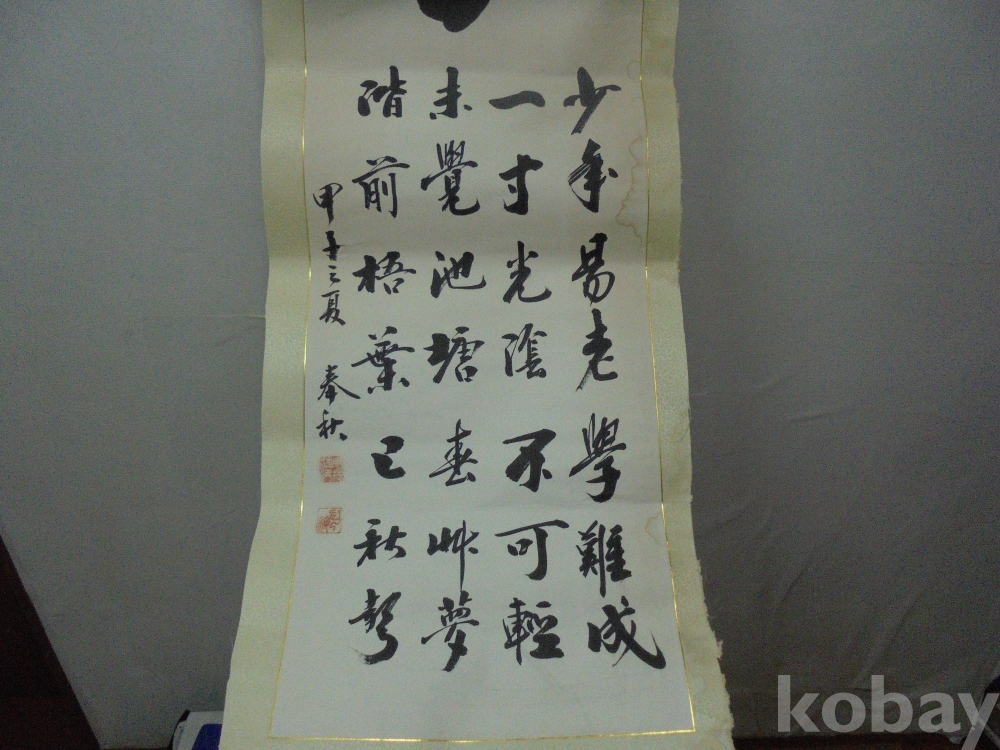 少年易老學難成
一寸光陰不可輕
未覺池塘春艸夢
階前梧葉已秋聲
甲子之夏 奉秋
kobay